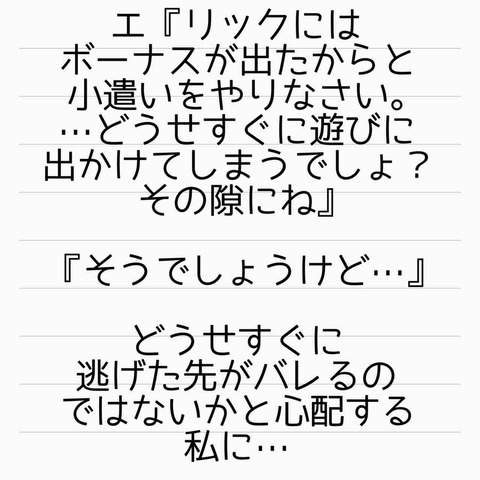 エ『リックには
ボーナスが出たからと
小遣いをやりなさい。
…どうせすぐに遊びに
出かけてしまうでしょ？
その隙にね』
『そうでしょうけど…』
どうせすぐに
逃げた先がバレるの
ではないかと心配する
私に…